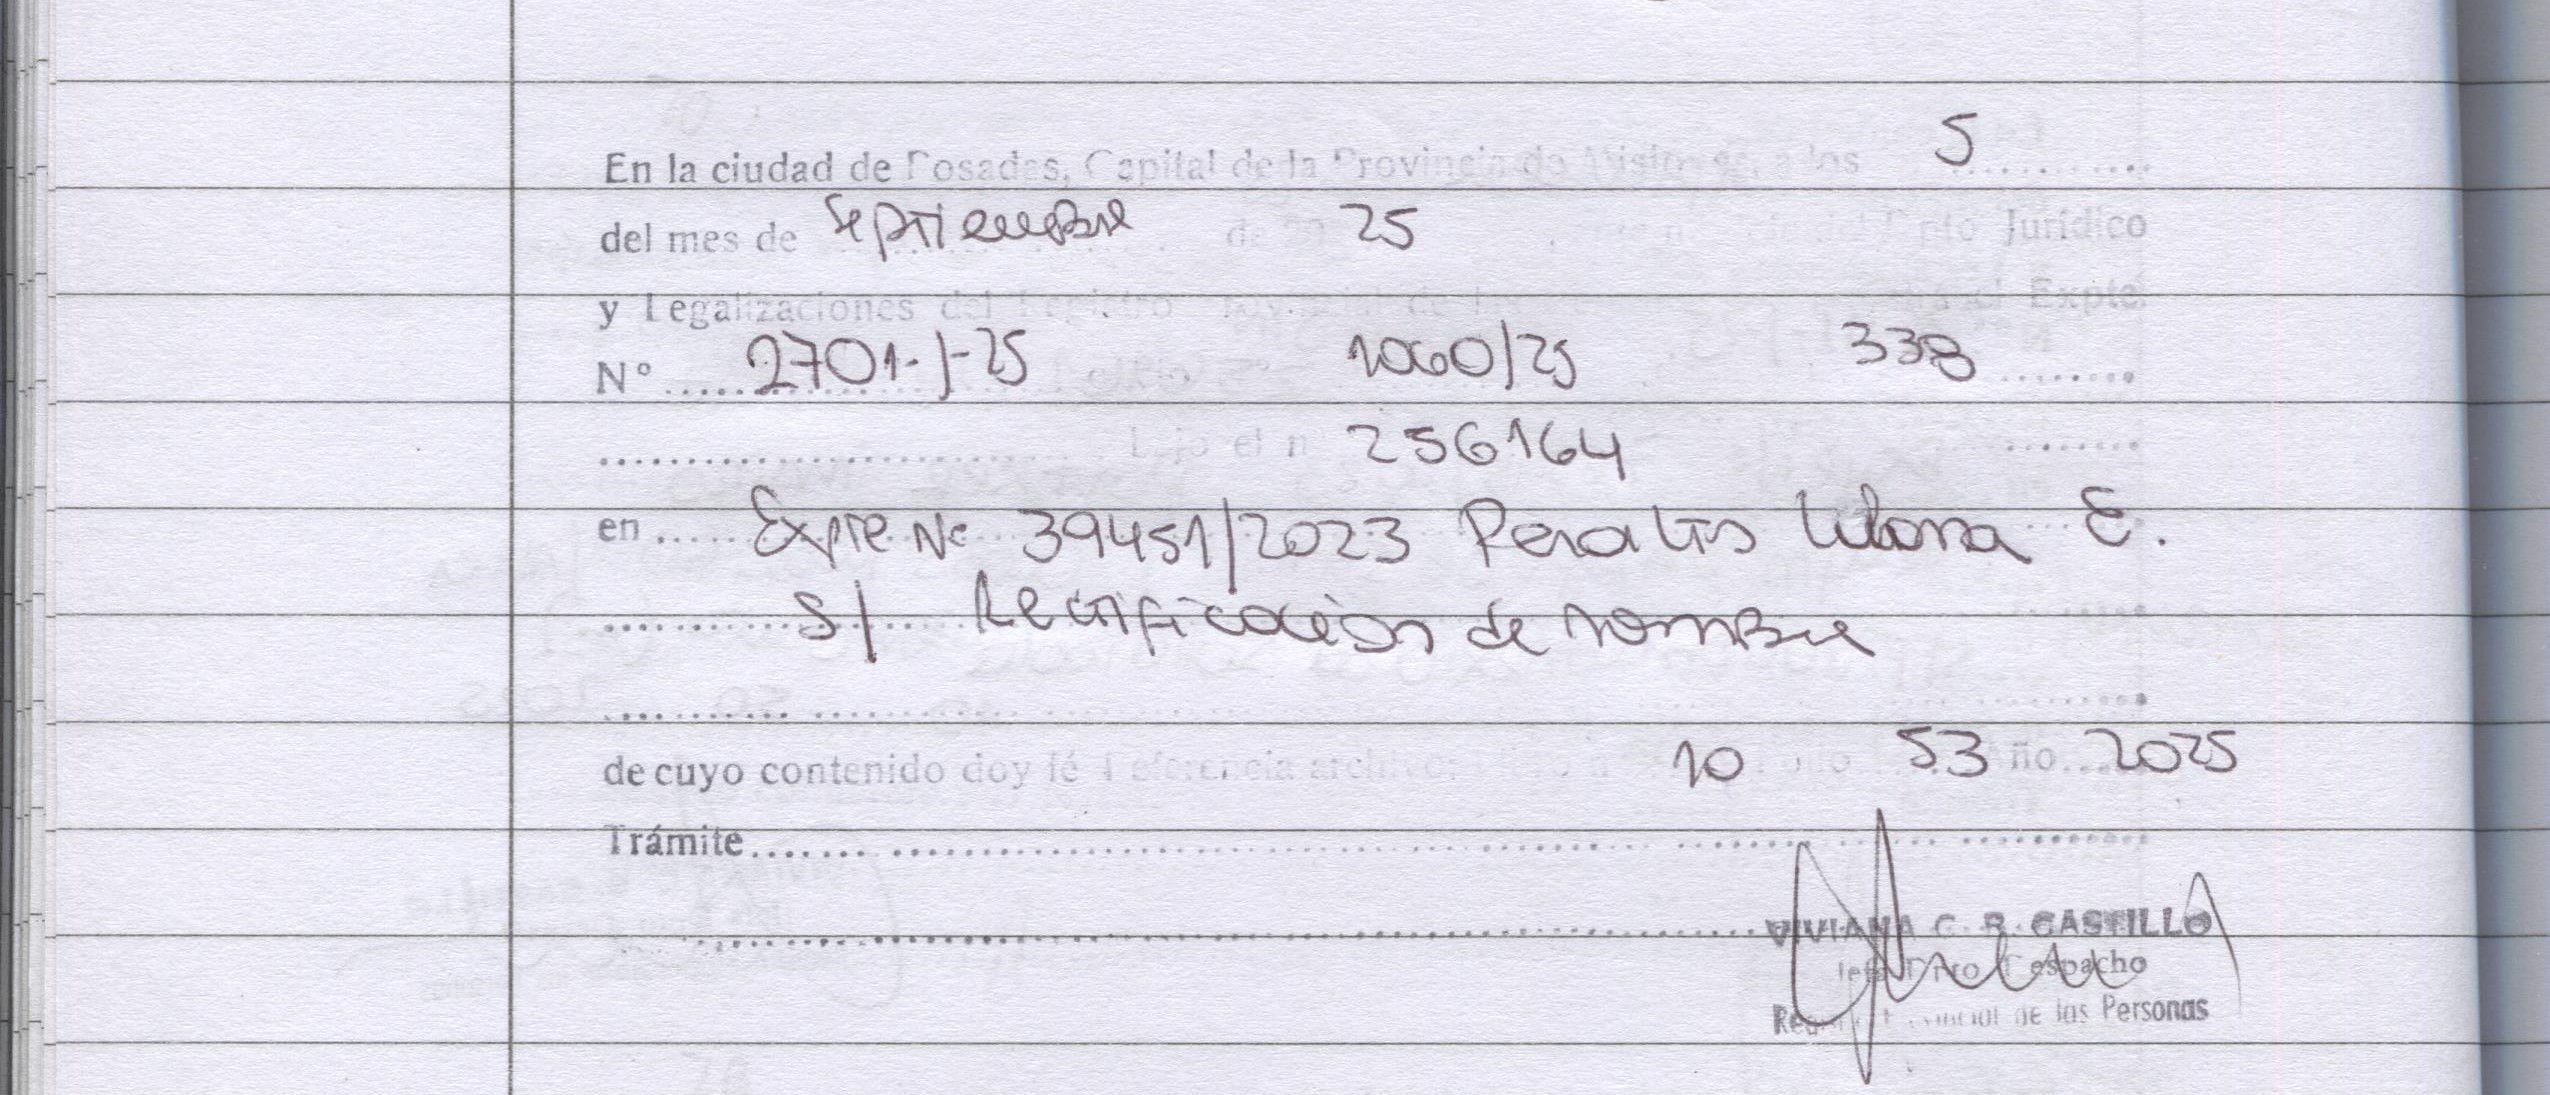 En la ciudad de Posadas, Capital de la Provincia de Misiones, a los 5
del mes de Septiembre de 25 Dpto Jurídico
y Legalizaciones del Registro Provincial de las Expte.
Nº 2701-J-25 1060/25 338
bajo el n 256164
en Expte Nº 39451/2023 Peralta E.
s/ Rectificación de nombre
de cuyo contenido doy fé Referencia archivo 10 Folio 53 Año 2025
Trámite
VIVIANA C. R. CASTILLO
Jefe Dpto Despacho
Registro Provincial de las Personas